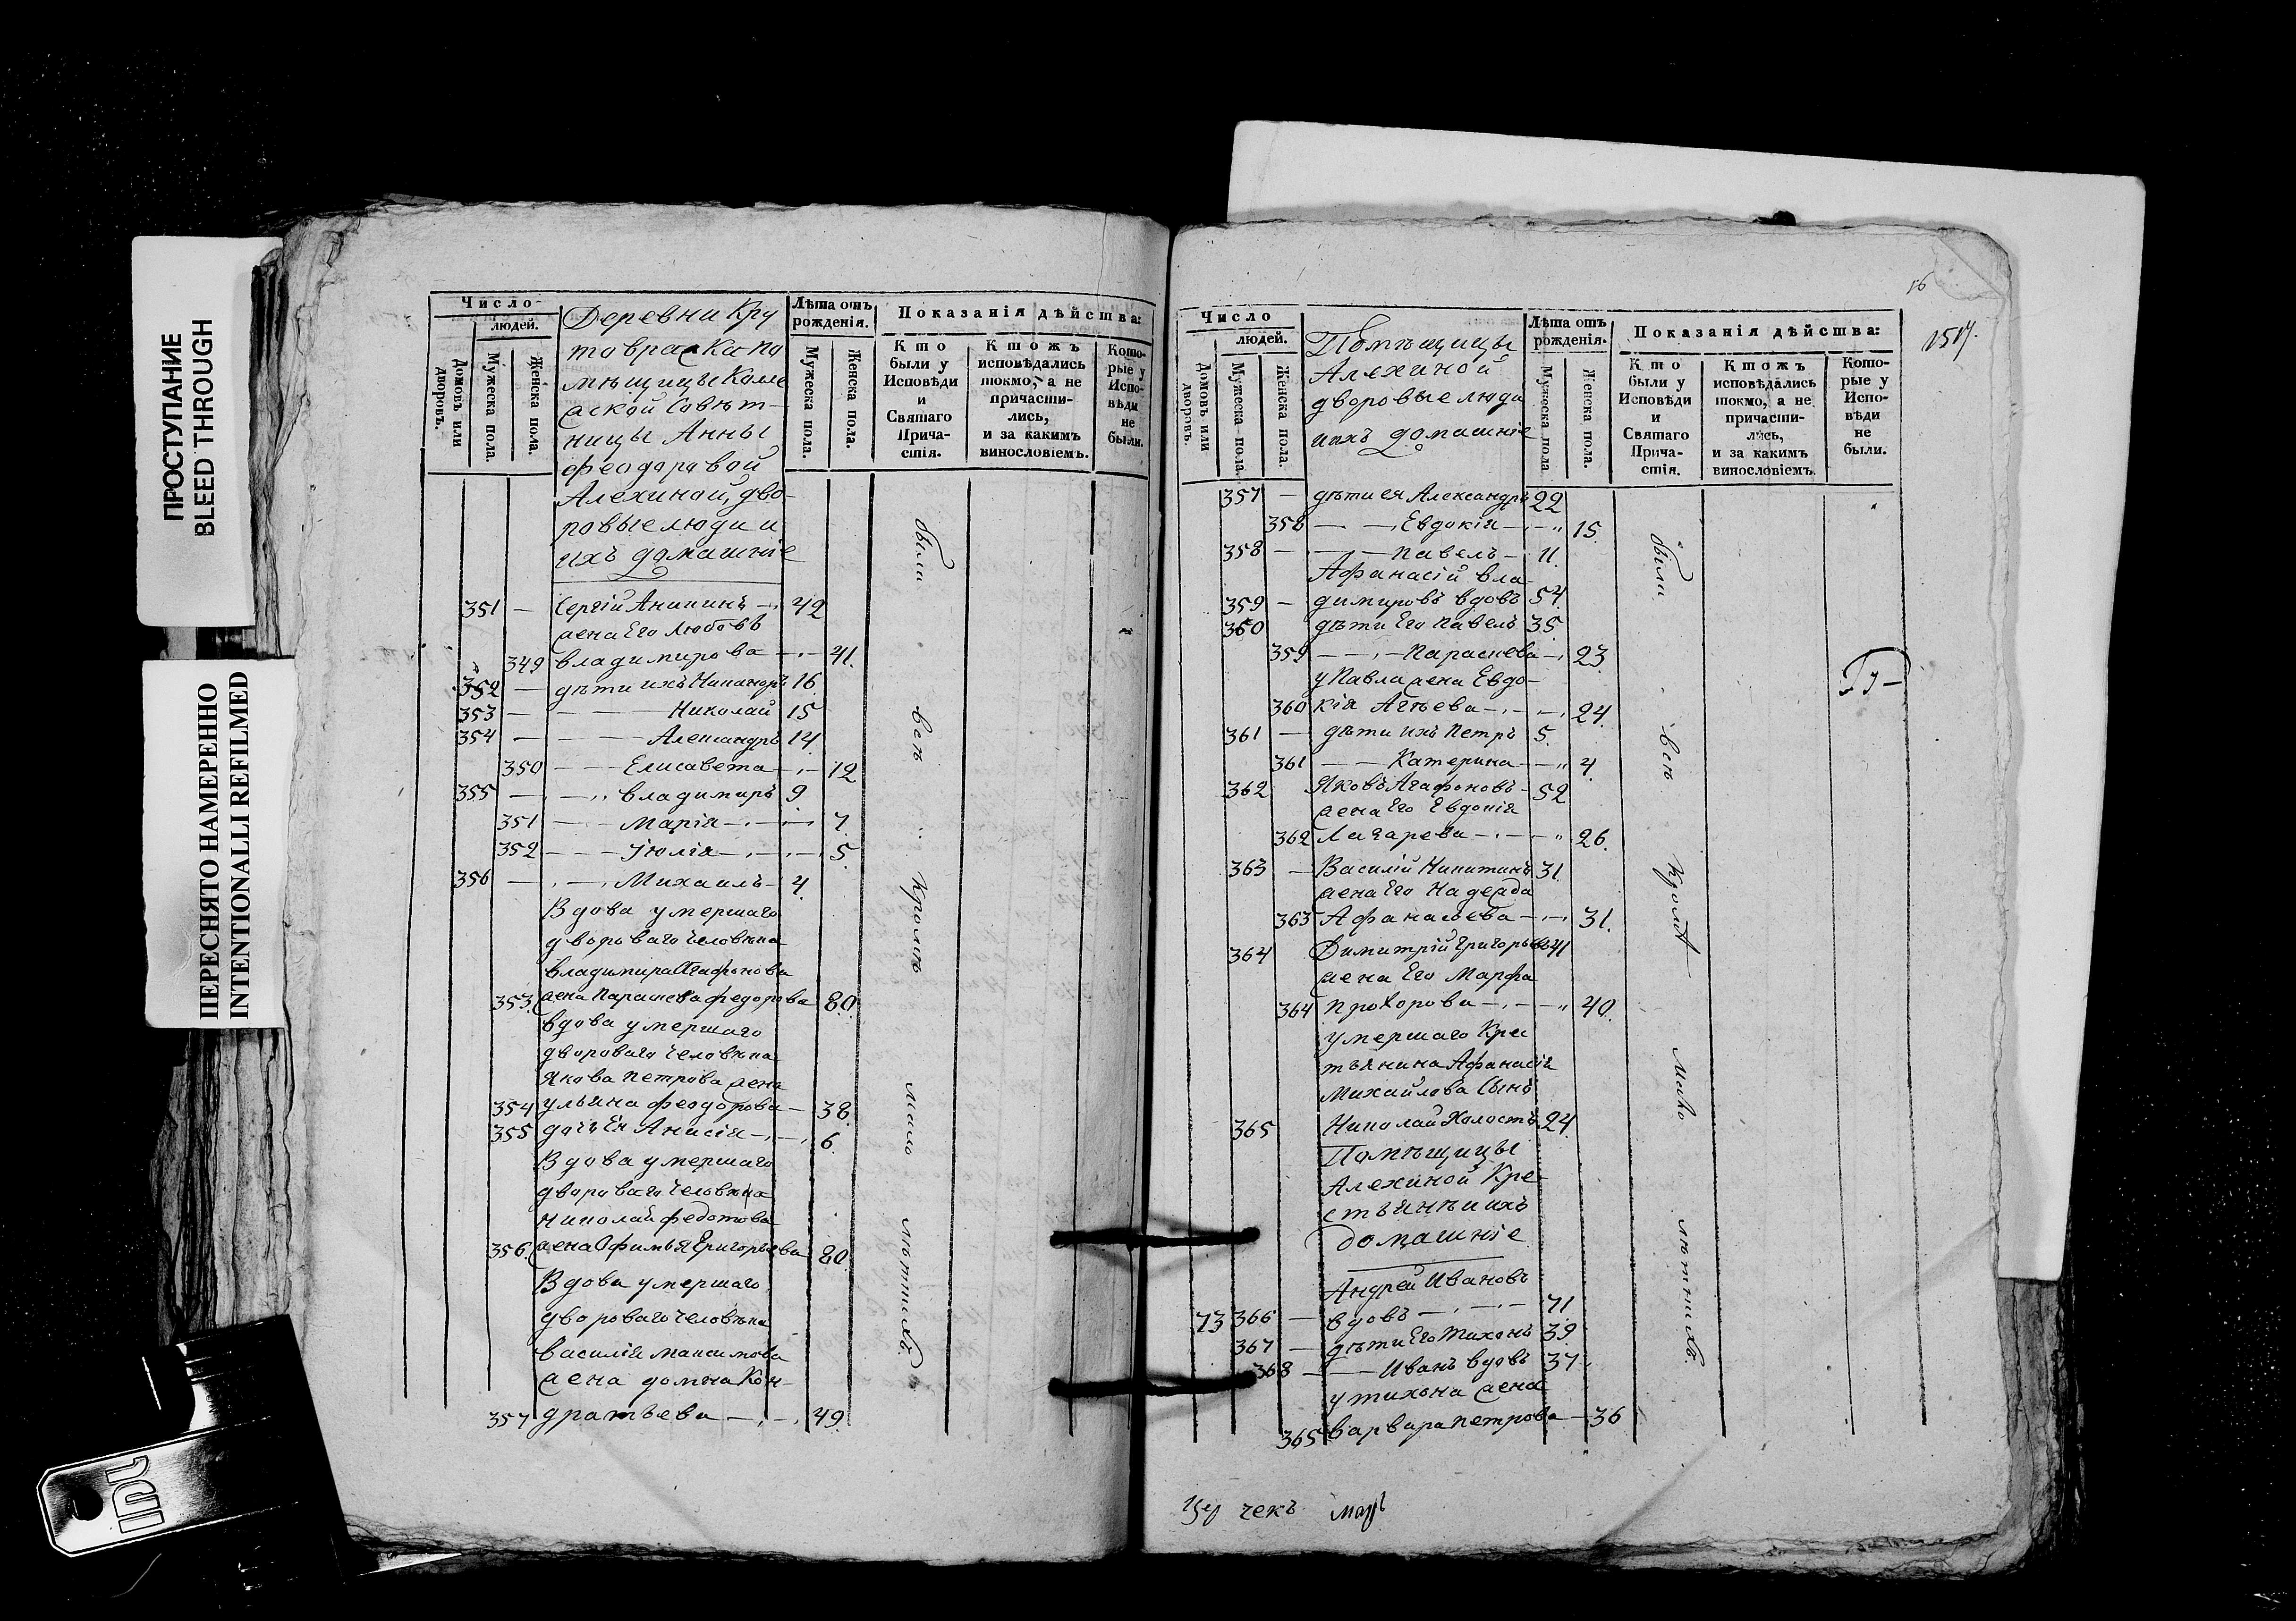 ПРОСТУПАНИЕ
BLEED THROUGH
ПЕРЕСНЯТО НАМЕРЕННО
INTENTIONALLI REFILMED
Число
людей.
Домовъ или дворовъ.
Мужеска пола.
Женска пола.
Деревни Кру
товражка по
мѣщицы Колле
жской Совѣт-
ницы Анны
Феодоровой
Алехиной, дво-
ровые люди и
ихъ домашніе
Лѣта отъ рожденія.
Мужеска пола.
Женска пола.
Показанія дѣйства:
Кто были у Исповѣди и Святаго Прича-стія.
Ктожъ исповѣдались токмо, а не причасти-лись, и за какимъ винословіемъ.
Кото-рые у Испо-вѣди не были.
351 — Сергій Ананинъ — 42
жена Его Любовь
349 Владимирова — 41.
352 — дѣти ихъ Никаноръ 16
353 — Николай 15
354 — Александръ 14
350 — Елисавета — 12
355 — Владимиръ 9
351 — Марія — 7.
352 — Іюлія — 5.
356 — Михаилъ — 4.
Вдова умершаго
двороваго человѣка
Владимира Агафонова
353. жена Параскева Федорова 80.
Вдова умершаго
двороваго человѣка
Якова Петрова жена
354 Ульяна Феодорова — 38.
355 дочь Ея Анисія — 6.
Вдова умершаго
двороваго человѣка
Николай Федотова
356. жена Офимья Григорьева 80.
Вдова умершаго
двороваго человѣка
Василія Максимова
жена Домна Кон-
357 дратьева — 49.
были всѣ Кромѣ мало лѣтнихъ.
16
1517.
Число
людей.
Домовъ или дворовъ.
Мужеска пола.
Женска пола.
Помѣщицы
Алехиной
дворовые люди
ихъ домашніе
Лѣта отъ рожденія.
Мужеска пола.
Женска пола.
Показанія дѣйства:
Кто были у Исповѣди и Святаго Прича-стія.
Ктожъ исповѣдались токмо, а не причасти-лись, и за какимъ винословіемъ.
Кото-рые у Испо-вѣди не были.
357 — дѣти ея Александръ 22
358 — Евдокія — 15.
358 — Павелъ — 11.
Афанасій Вла-
359 — димировъ вдовъ 54.
360 дѣти Его Павелъ 35.
359 — Параскева — 23.
у Павла жена Евдо-
360 кія Агѣева — 24.
361 — дѣти ихъ Петръ 5.
361 — Катерина — 4.
362 Яковъ Агафоновъ — 52
жена Его Евдокія
362 Лазарева — 26.
363 — Василій Никитинъ 31.
жена Его Надежда
363 Афанасьева — 31.
364 Димитрій Григорьевъ 41
жена Его Марфа
364 Прохорова — 40.
умершаго Крес
тьянина Афанасія
Михайлова Сынъ
365 Николай Холостъ 24.
Помѣщицы
Алехиной Кре-
стьянѣ и ихъ
домашніе
Андрей Ивановъ
73 366 — вдовъ — 71.
367 — дѣти Его Тихонъ 39
368 — Иванъ вдовъ 37.
у Тихона жена
365 Варвара Петрова — 36
были всѣ Кромѣ мало лѣтнихъ.